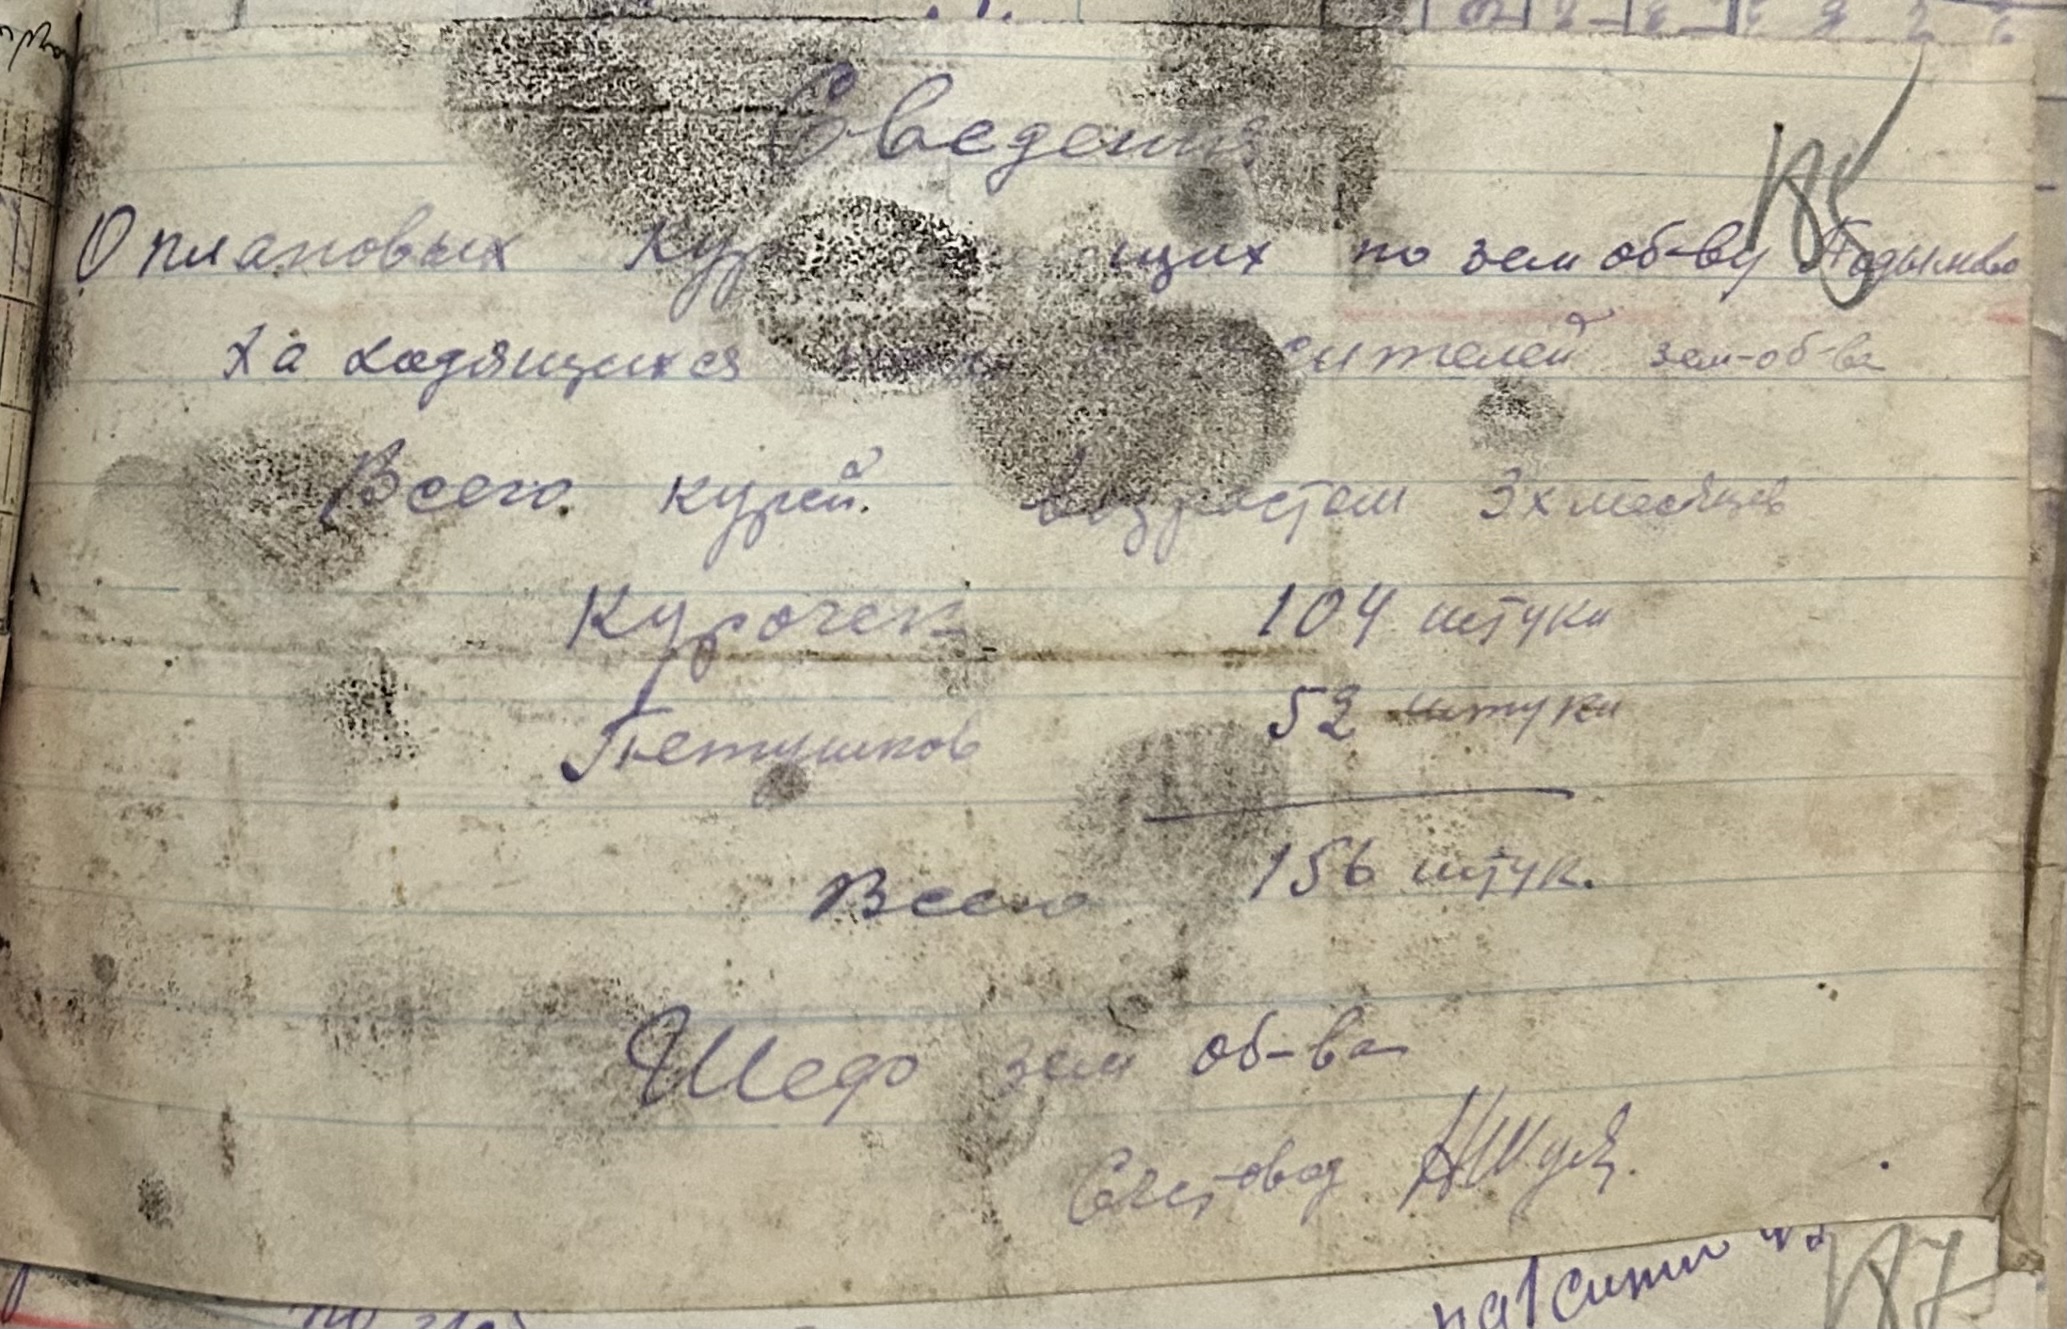 Сведения
О плановых кур щих по зем об-ву
Ха ходящихся жителей зем-об-ва
Всего курей. возрастом 3х месяцев
Курочек 104 штуки
Петушков 52 штуки
Всего 156 штук.
Шеф зем об-ва
Счетовод
187